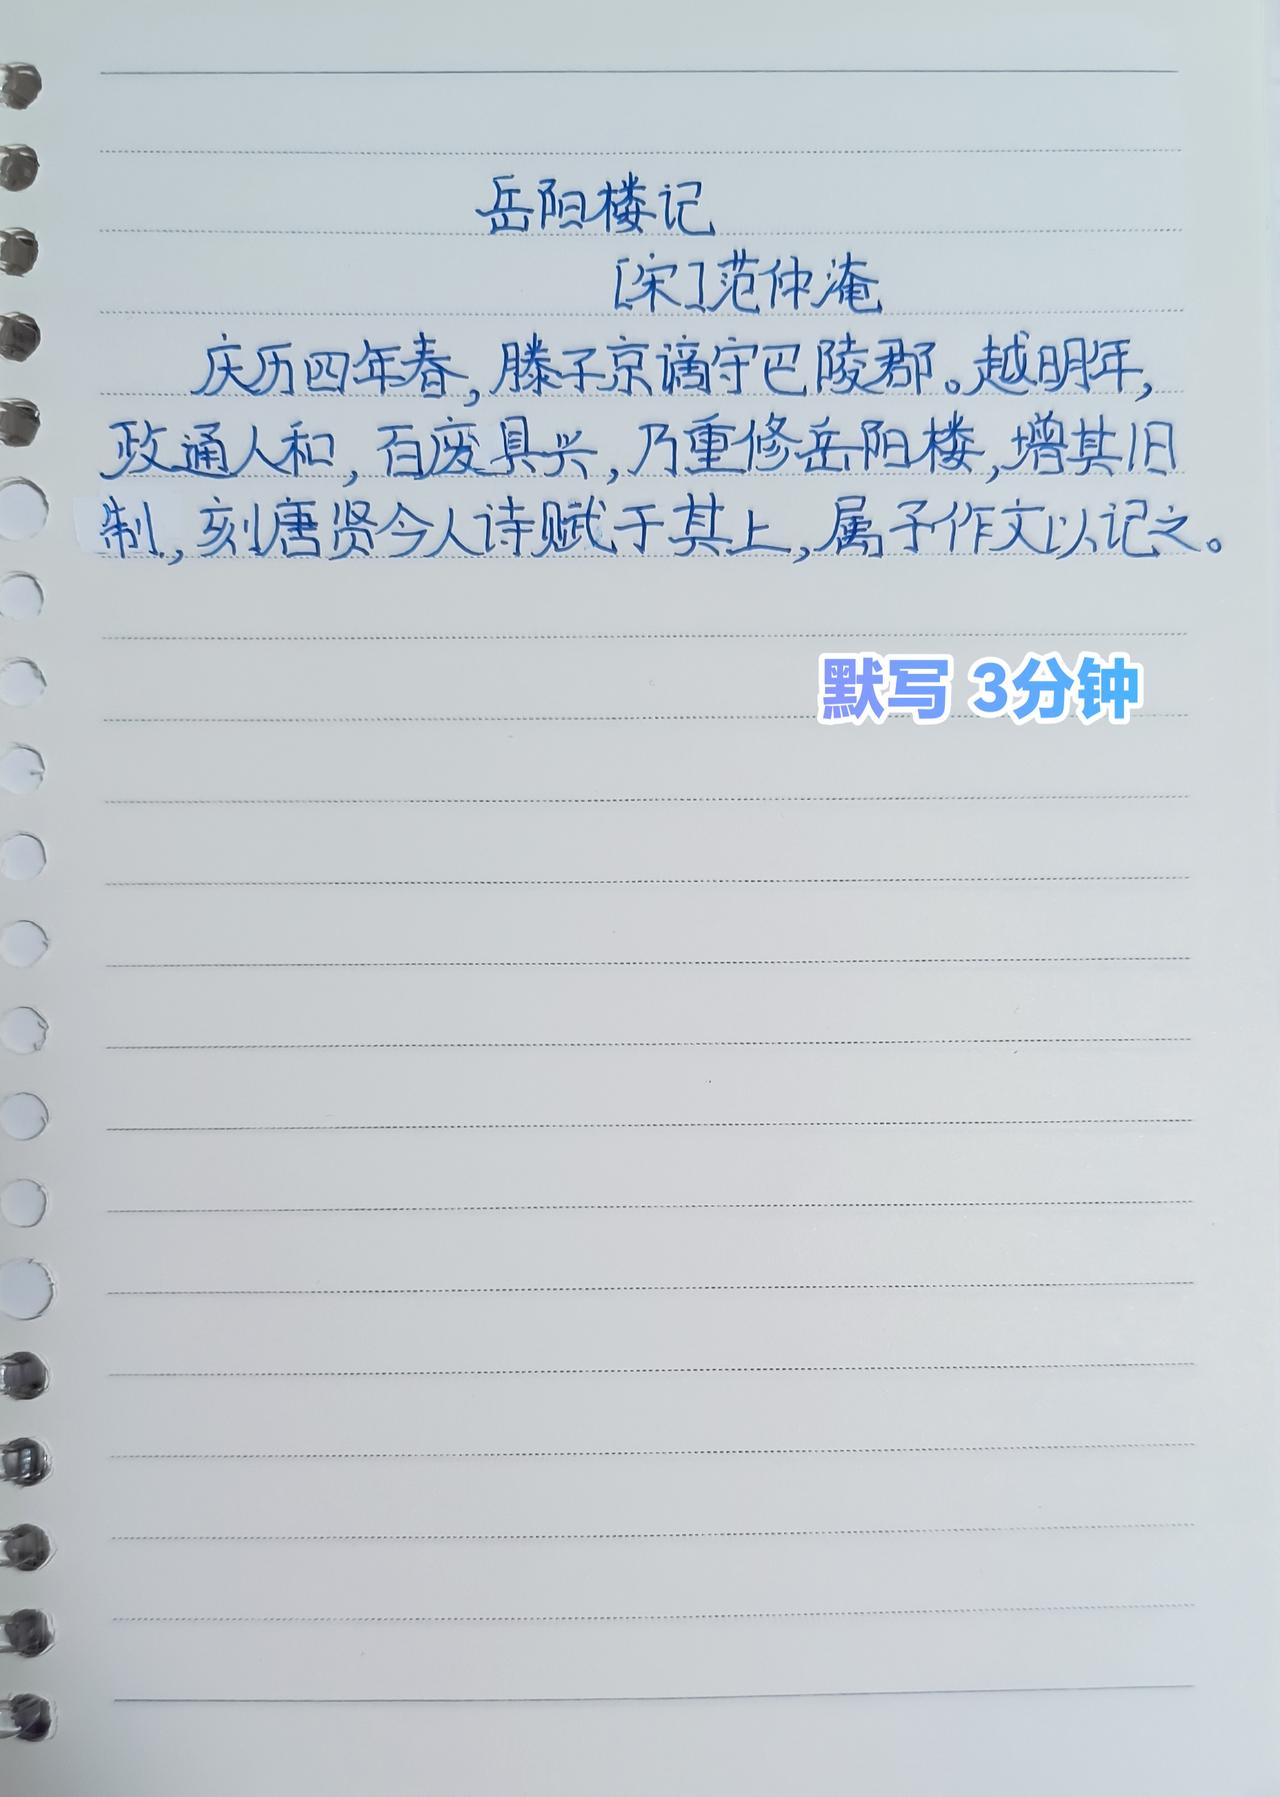 岳阳楼记
[宋]范仲淹
庆历四年春,滕子京谪守巴陵郡。越明年,
政通人和,百废具兴,乃重修岳阳楼,增其旧
制,刻唐贤今人诗赋于其上,属予作文以记之。
默写 3分钟